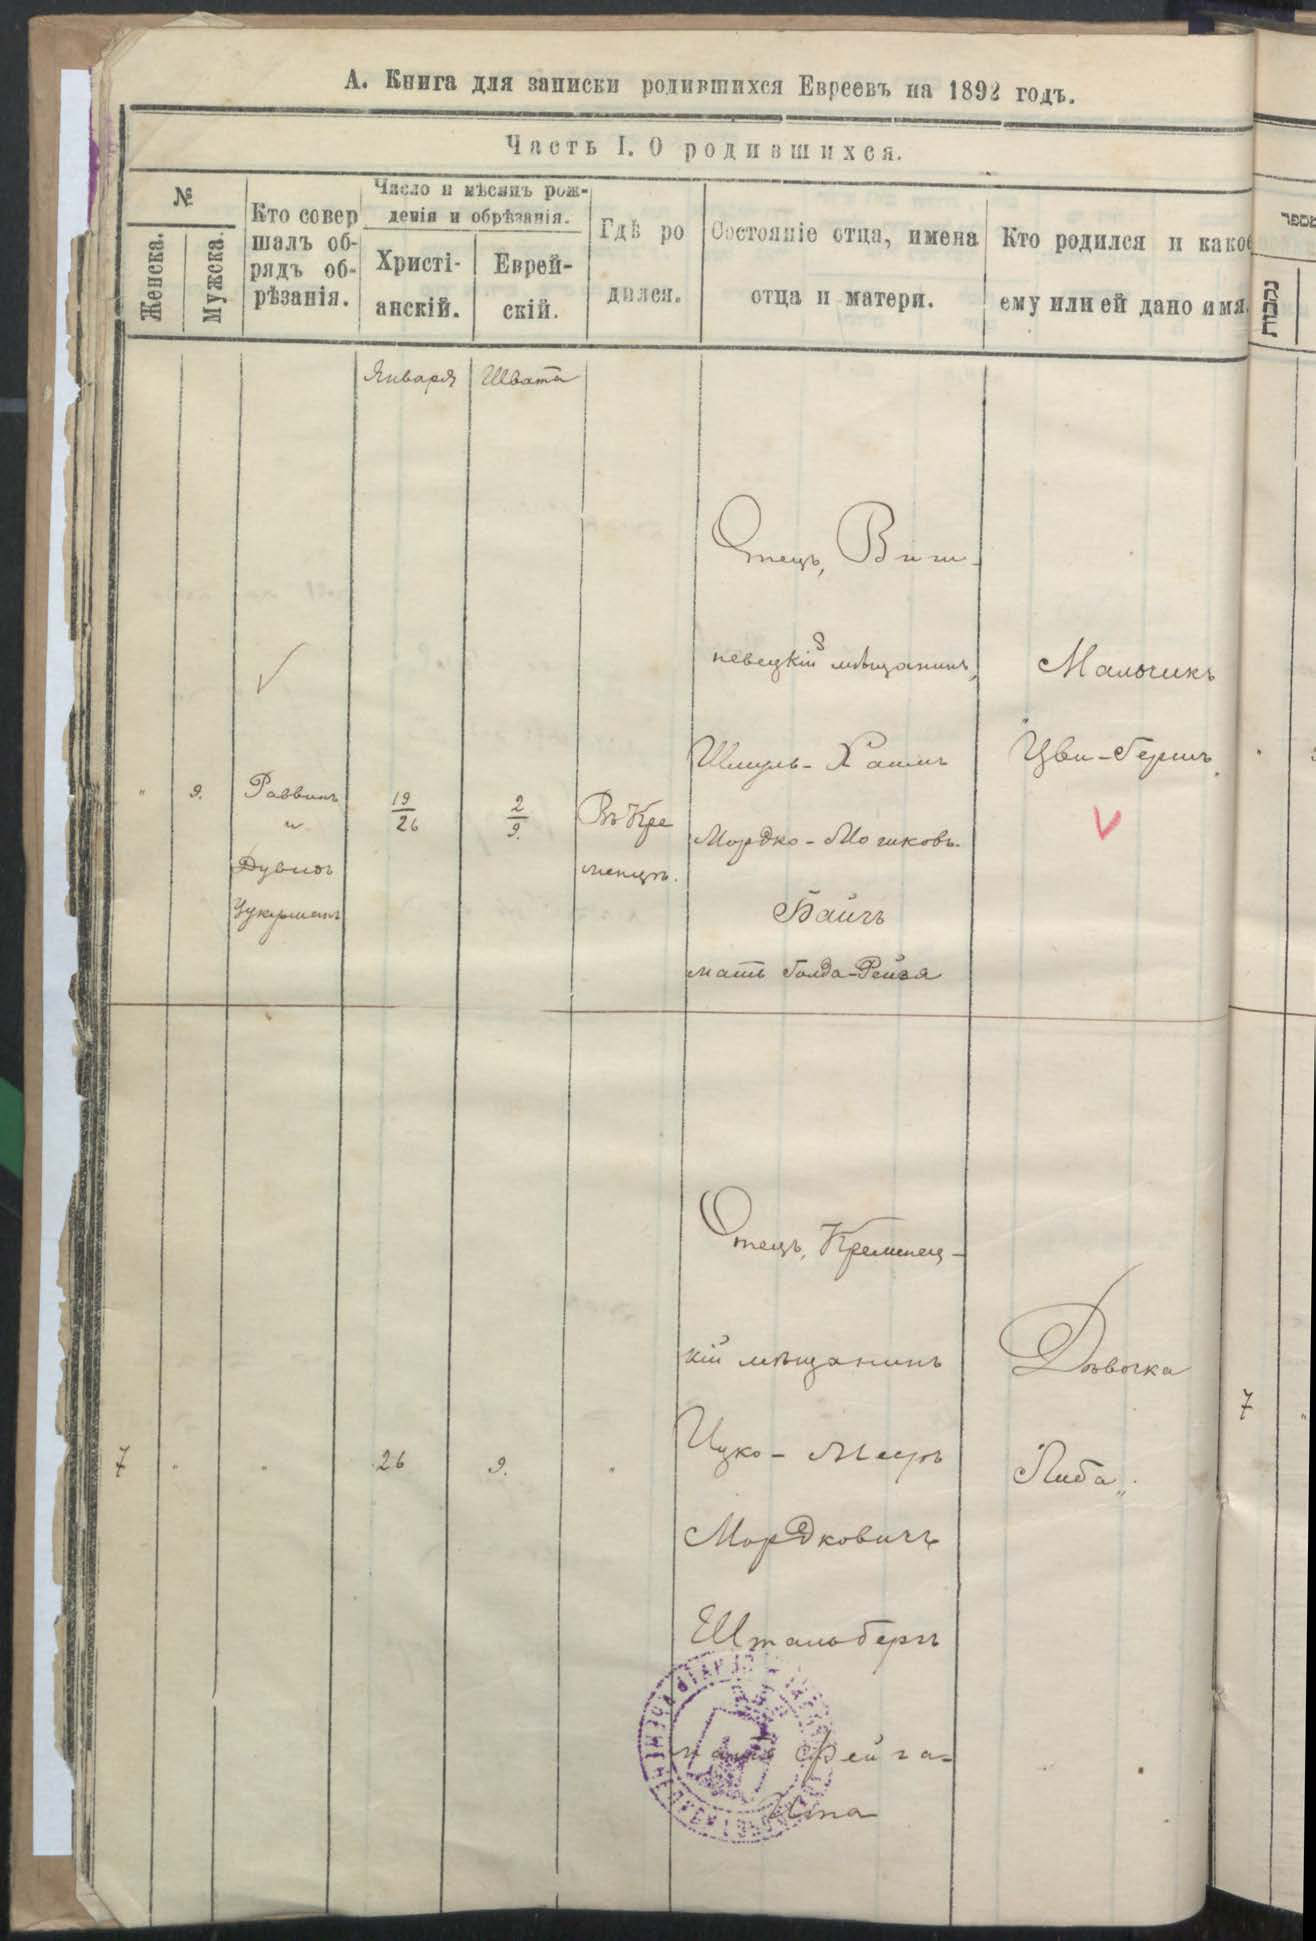 А. Книга для записки родившихся Евреевъ на 1892 годъ.
Часть I. О родившихся.
№
Женска.
Мужска.
Кто совер
шалъ об-
рядъ об-
рѣзанія.
Число и мѣсяцъ рож-
денія и обрѣзанія.
Христі-
анскій.
Еврей-
скій.
Гдѣ ро
дился.
Состояніе отца, имена
отца и матери.
Кто родился и какое
ему или ей дано имя.
מספר
נקבות
Января
Швата
"
9.
Раввинъ
"
Дувидъ
Цукерманъ
19
26
2
9.
Въ Кре
менцѣ.
Отецъ, Виш-
невецкій мѣщанинъ,
Шмуль-Хаимъ
Мордко-Мошковъ.
Байчъ
мать Голда-Рейзя
Мальчикъ
„Цви-Гершъ„
7
"
"
26
9.
"
Отецъ, Кременец-
кій мѣщанинъ
Ицко-Мееръ
Мордковичъ
Штальбергъ
мать Фейга-
Ита
Дѣвочка
„Либа„.
7